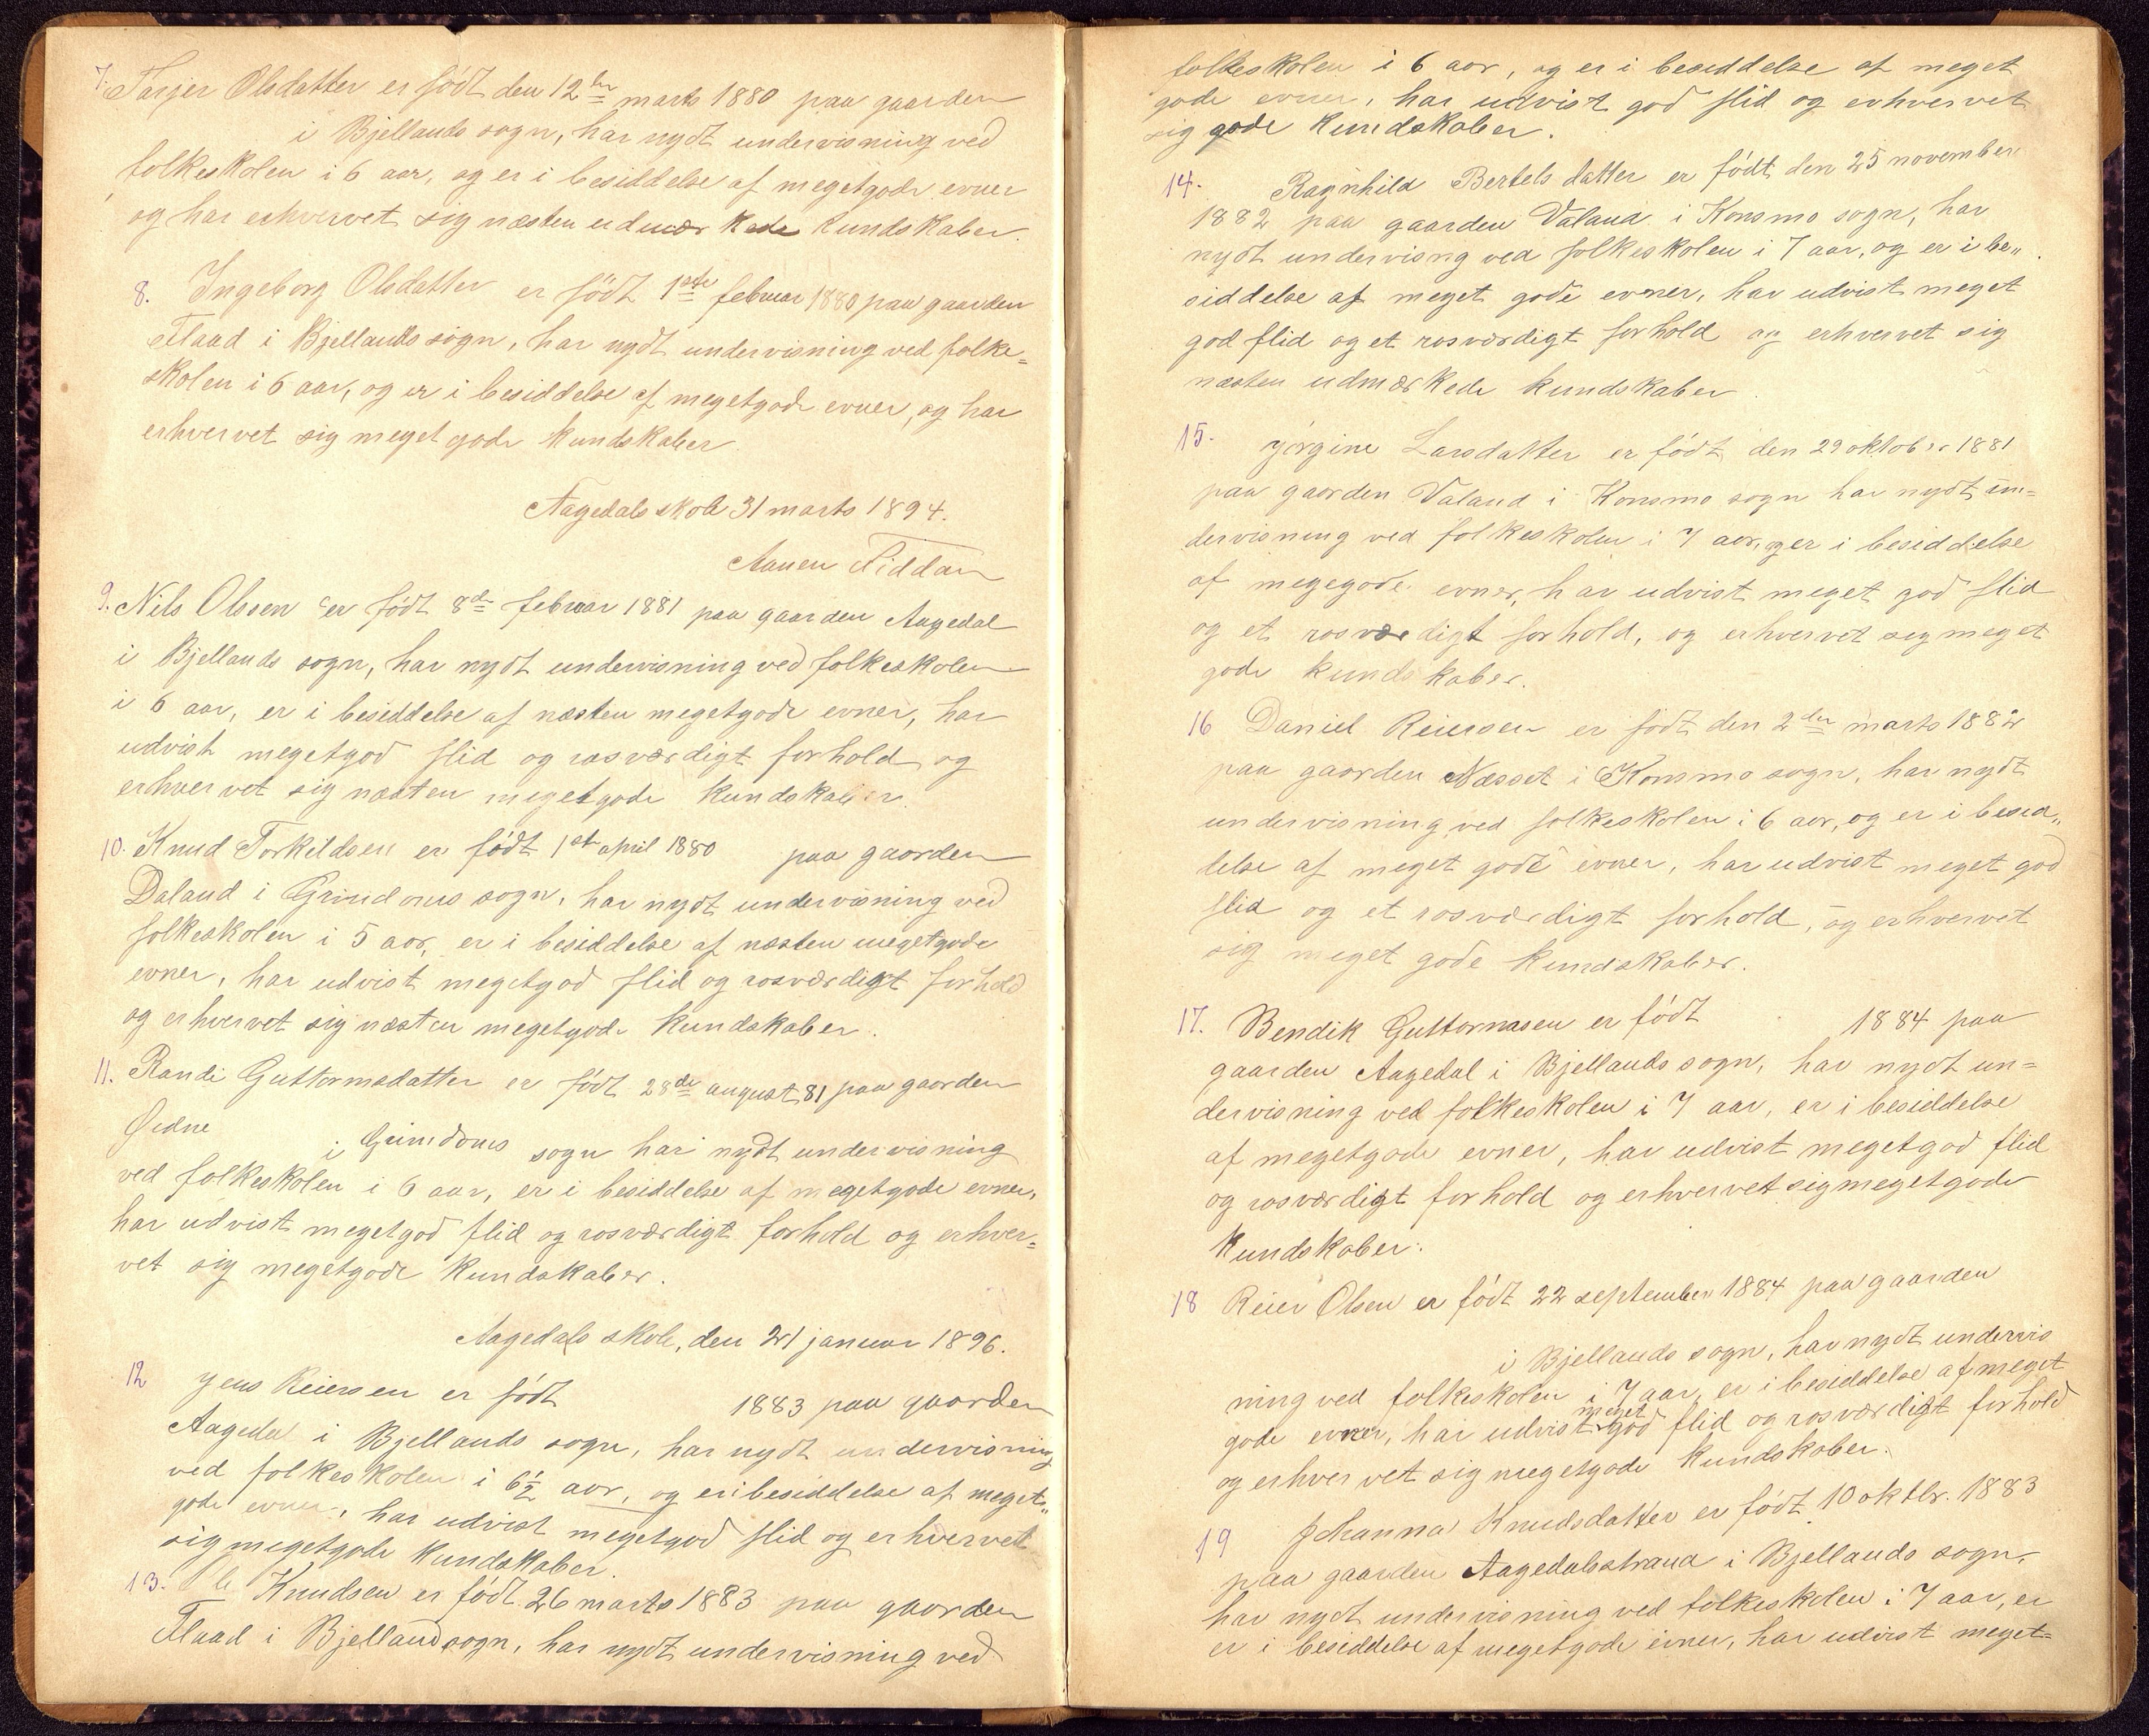 7. Tarjer Olsdatter er födt den 12te marts 1880 paa gaarden
i Bjellands sogn, har nydt undervisning ved
folkeskolen i 6 aar, og er i besiddelse af megetgode evner
og har erhvervet sig næsten udmærkede kundskaber.
8. Ingeborg Olsdatter er födt 1ste februar 1880 paa gaarden
Flaad i Bjellands sogn, har nydt undervisning ved folke=
skolen i 6 aar, og er i besiddelse af megetgode evner, og har
erhvervet sig megetgode kundskaber
Aagedals skole 31 marts 1894.
Aanen Fiddan
9. Nils Olssen er födt 8de februar 1881 paa gaarden Aagedal
i Bjellands sogn, har nydt undervisning ved folkeskolen
i 6 aar, er i besiddelse af næsten megetgode evner, har
udvist megetgod flid og rosværdigt forhold og
erhvervet sig næsten megetgode kundskaber.
10. Knud Torkildsen er födt 1ste april 1880 paa gaarden
Daland i Grindoms sogn, har nydt undervisning ved
folkeskolen i 5 aar, er i besiddelse af næsten megetgode
evner, har udvist megetgod flid og rosværdigt forhold
og erhvervet sig næsten megetgode kundskaber.
11. Randi Guttormsdatter er födt 28de august 81 paa gaarden
Ödne i Grindoms sogn har nydt undervisning
ved folkeskolen i 6 aar, er i besiddelse af megetgode evner,
har udvist megetgod flid og rosværdigt forhold og erhver=
vet sig megetgode kundskaber.
Aagedals skole, den 21 januar 1896.
12 Jens Reiersen er födt 1883 paa gaarden
Aagedal i Bjellands sogn, har nydt undervisning
ved folkeskolen i 6½ aar, og er i besiddelse af meget„
gode evner, har udvist megetgod flid og erhvervet
sig megetgode kundskaber.
13. Ole Knudsen er födt 26 marts 1883 paa gaarden
Flaad i Bjellandsogn, har nydt undervisning ved
folkeskolen i 6 aar, og er i besiddelse af meget
gode evner, har udvist god flid og erhvervet
sig gode kundskaber.
14. Ragnhild Bertels datter er födt den 25 november
1882 paa gaarden Valand i Konsmo sogn, har
nydt undervisng ved folkeskolen i 7 aar, og er i be„
siddelse af meget gode evner, har udvist meget
god flid og et rosværdigt forhold og erhvervet sig
næsten udmærkede kundskaber.
15. Jörgine Larsdatter er födt den 29 oktober 1881
paa gaarden Valand i Konsmo sogn har nydt un=
dervisning ved folkeskolen i 7 aar, og er i besiddelse
af megegode evner, har udvist meget god flid
og et rosværdigt forhold, og erhvervet sig meget
gode kundskaber.
16 Daniel Reiersen er födt den 2den marts 1882
paa gaarden Næsset i Konsmo sogn, har nydt
undervisning ved folkeskolen i 6 aar, og er i besid„
delse af meget gode evner, har udvist meget god
flid og et rosværdigt forhold, og erhvervet
sig meget gode kundskaber.
17. Bendik Guttormsen er födt 1884 paa
gaarden Aagedal i Bjellands sogn, har nydt un=
dervisning ved folkeskolen i 7 aar, er i besiddelse
af megetgode evner, har udvist megetgod flid
og rosværdigt forhold og erhvervet sig megetgode
kundskaber.
18 Reier Olsen er födt 22 september 1884 paa gaarden
i Bjellands sogn, har nydt undervis
ning ved folkeskolen i 7 aar, er i besiddelse af meget
gode evner, har udvist meget god flid og rosværdigt forhold
og erhvervet sig megetgode kundskaber.
19 Johanna Knudsdatter er födt 10 oktbr. 1883
paa gaarden Aagedalsstrand i Bjellands sogn,
har nydt undervisning ved folkeskolen i 7 aar, er
er i besiddelse af megetgode evner, har udvist meget=